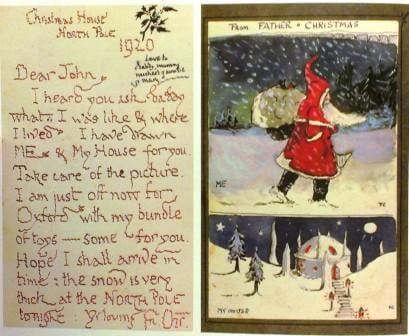 Christmas House
NORTH POLE
1920
Love to
daddy, mummy
& auntie
mary
Dear John
I heard you ask daddy
what I was like & where
I lived. I have drawn
ME & My House for you.
Take care of the picture.
I am just off now for
Oxford with my bundle
of toys — some for you.
Hope I shall arrive in
time : the snow is very
thick at the NORTH POLE
tonight : Yr loving Fr. Chr.
From FATHER · CHRISTMAS
ME
FC
MY HOUSE
FC